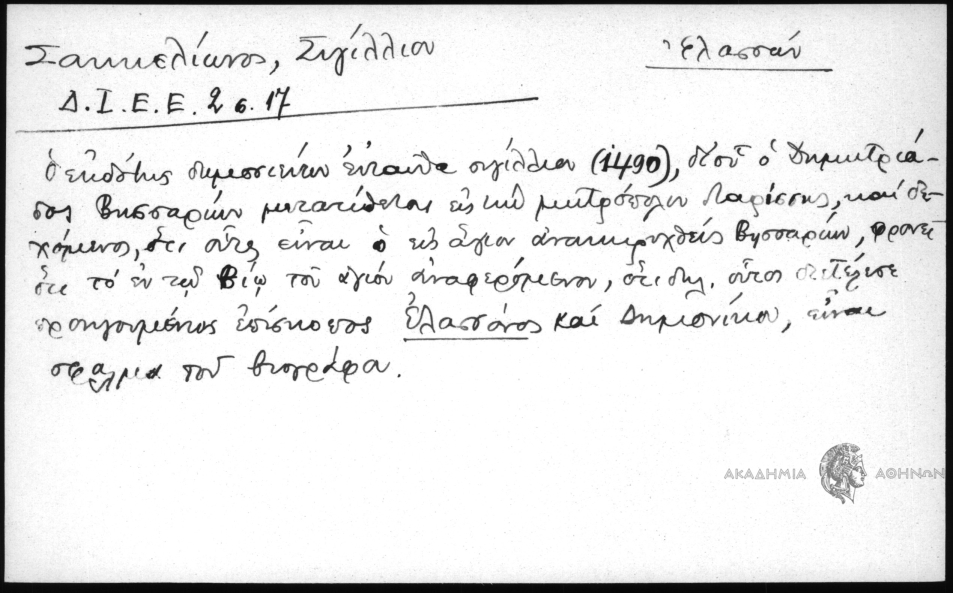 Σακκελίωνος, Σιγίλλιον
Ἐλασσών
Δ.Ι.Ε.Ε. 2 σ. 17
ὁ ἐκδότης δημοσιεύων ἐνταῦθα σιγίλλιον (1490), δι' οὗ ὁ Δημητριά-
δος Βησσαρίων μετατίθεται εἰς τὴν μητρόπολιν Λαρίσσης, καὶ δε-
χόμενος, ὅτι οὗτος εἶναι ὁ εἰς ἅγιον ἀνακηρυχθείς Βησσαρίων, φρονεῖ
ὅτι τὸ ἐν τῷ Βίῳ τοῦ ἁγίου ἀναφερόμενον, ὅτι δηλ. οὗτος διετέλεσε
προηγουμένως ἐπίσκοπος Ἐλασσόνος καὶ Δημονίκου, εἶναι
σφάλμα τοῦ βιογράφου.
ΑΚΑΔΗΜΙΑ ΑΘΗΝΩΝ